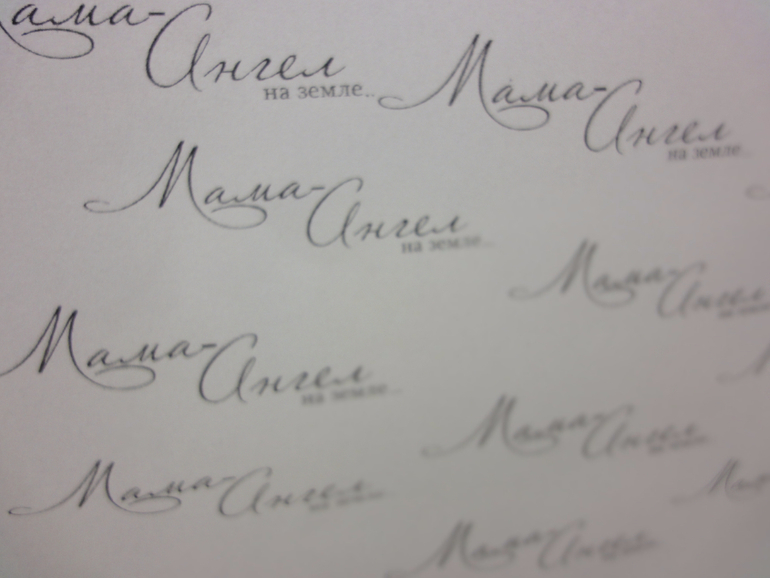 ама-
Ангел
на земле..
Мама-
Ангел
на земле...
Мама-
Ангел
на земле...
Мама-
Ангел
Мама-
Ангел
на земле...
Мама-
Ангел
Мама-
Ангел
Мама-
Ангел